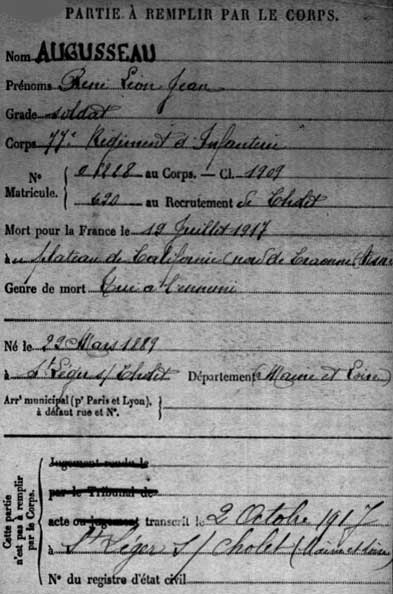 PARTIE À REMPLIR PAR LE CORPS.
Nom AUGUSSEAU
Prénoms René Léon Jean
Grade soldat
Corps 77e Régiment d'Infanterie
N° Matricule. { 01228 au Corps. — Cl. 1909
620 au Recrutement de Cholet
Mort pour la France le 19 Juillet 1917
à plateau de Californie (nord de Craonne) Aisne
Genre de mort Tué à l'ennemi
Né le 22 Mars 1889
à St Léger s/ Cholet Département (Maine et Loire)
Arrt municipal (pr Paris et Lyon), à défaut rue et N°.
Cette partie n'est pas à remplir par le Corps.
Jugement rendu le
par le Tribunal de
acte ou jugement transcrit le 2 Octobre 1917
à St Léger s/ Cholet (Maine et Loire)
N° du registre d'état civil